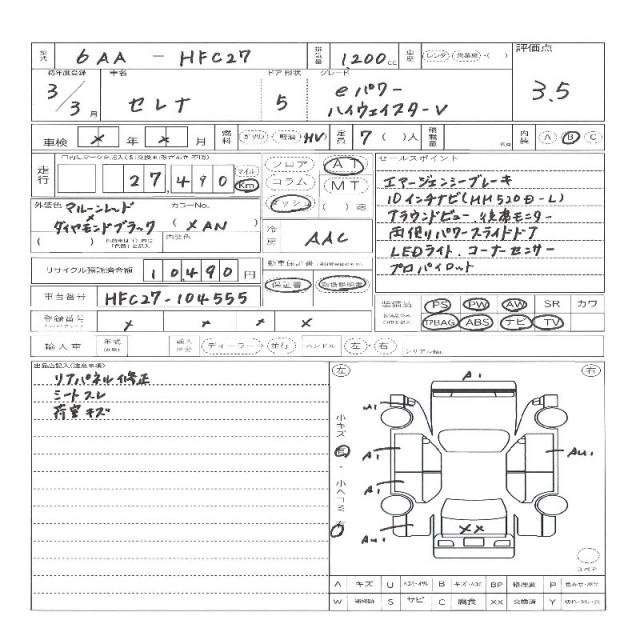 型式 6AA - HFC27 排気量 1,200 cc 評価点
初年度登録 車名 ドア形状 グレード
3/3月 セレナ 5 eパワー ハイウェイスターV 3.5
車検 × 年 × 月 燃料 ガソリン・軽油・HV 定員 7 ( )人 積載量 内装 A B C
走行 27,490 マイル Km
フロア AT
コラム MT
( )速
セールスポイント
エマージェンシーブレーキ
10インチナビ(MM520D-L)
アラウンドビュー、後席モニター
両側パワースライドドア
LEDライト、コーナーセンサー
プロパイロット
外装色 マルーンレッド カラーNo.
× ダイヤモンドブラック ( XAN )
内装色
冷房 AAC
リサイクル預託済金額 10,490 円
保証書 取扱説明書
車台番号 HFC27-104555
装備品 PS PW AW SR カワ
エアBAG ABS ナビ TV
登録番号 × × × ×
輸入車 ディーラー・並行 ハンドル 左・右 シリアルNo.
リアパネル修正
シートスレ
荷室キズ
左 右
A1
A1
A1 AU1
A1
XX
AU1
スペア
A キズ U B BP P
W S サビ C 腐食 XX 交換済 Y